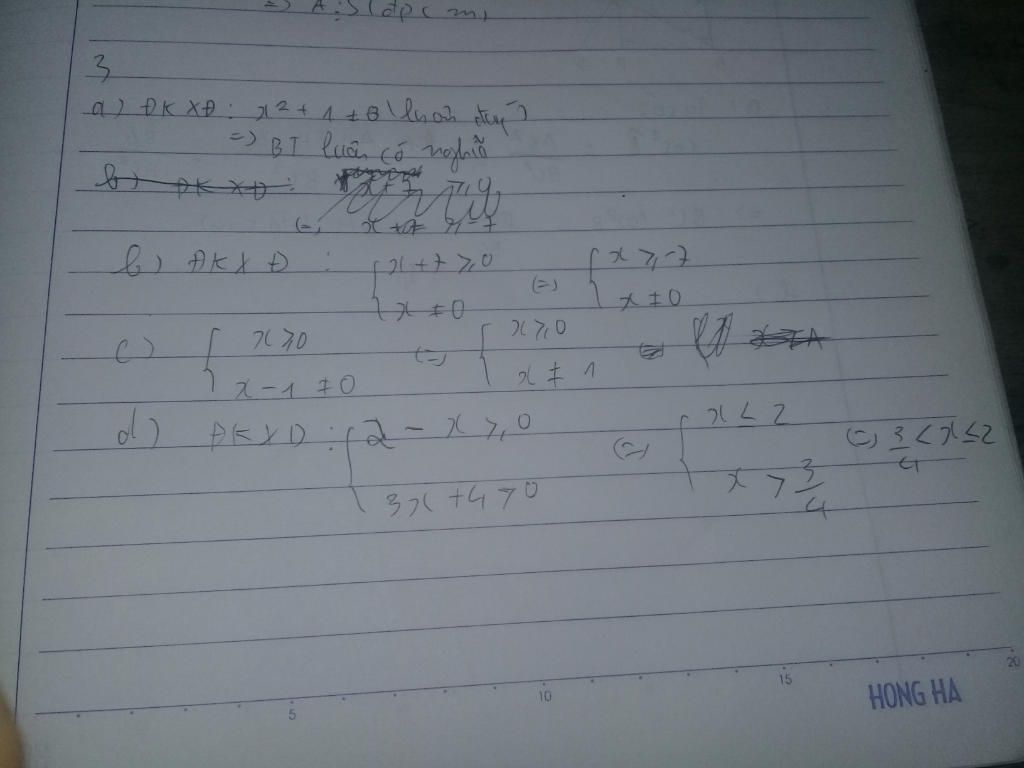 => A : 5 (đpcm)
3
a) ĐKXĐ : x² + 1 ≠ 0 (luôn đúng)
=> BT luôn có nghĩa
b) ĐKXĐ :
b) ĐKXĐ : { x + 7 ≥ 0 (=) { x ≥ -7
x ≠ 0 x ≠ 0
c) { x ≥ 0 (=) { x ≥ 0
x - 1 ≠ 0 x ≠ 1
d) ĐKXĐ : { 2 - x ≥ 0 (=) { x ≤ 2 (=) 3/4 < x ≤ 2
3x + 4 > 0 x > 3/4
5 10 15 20
HONG HA